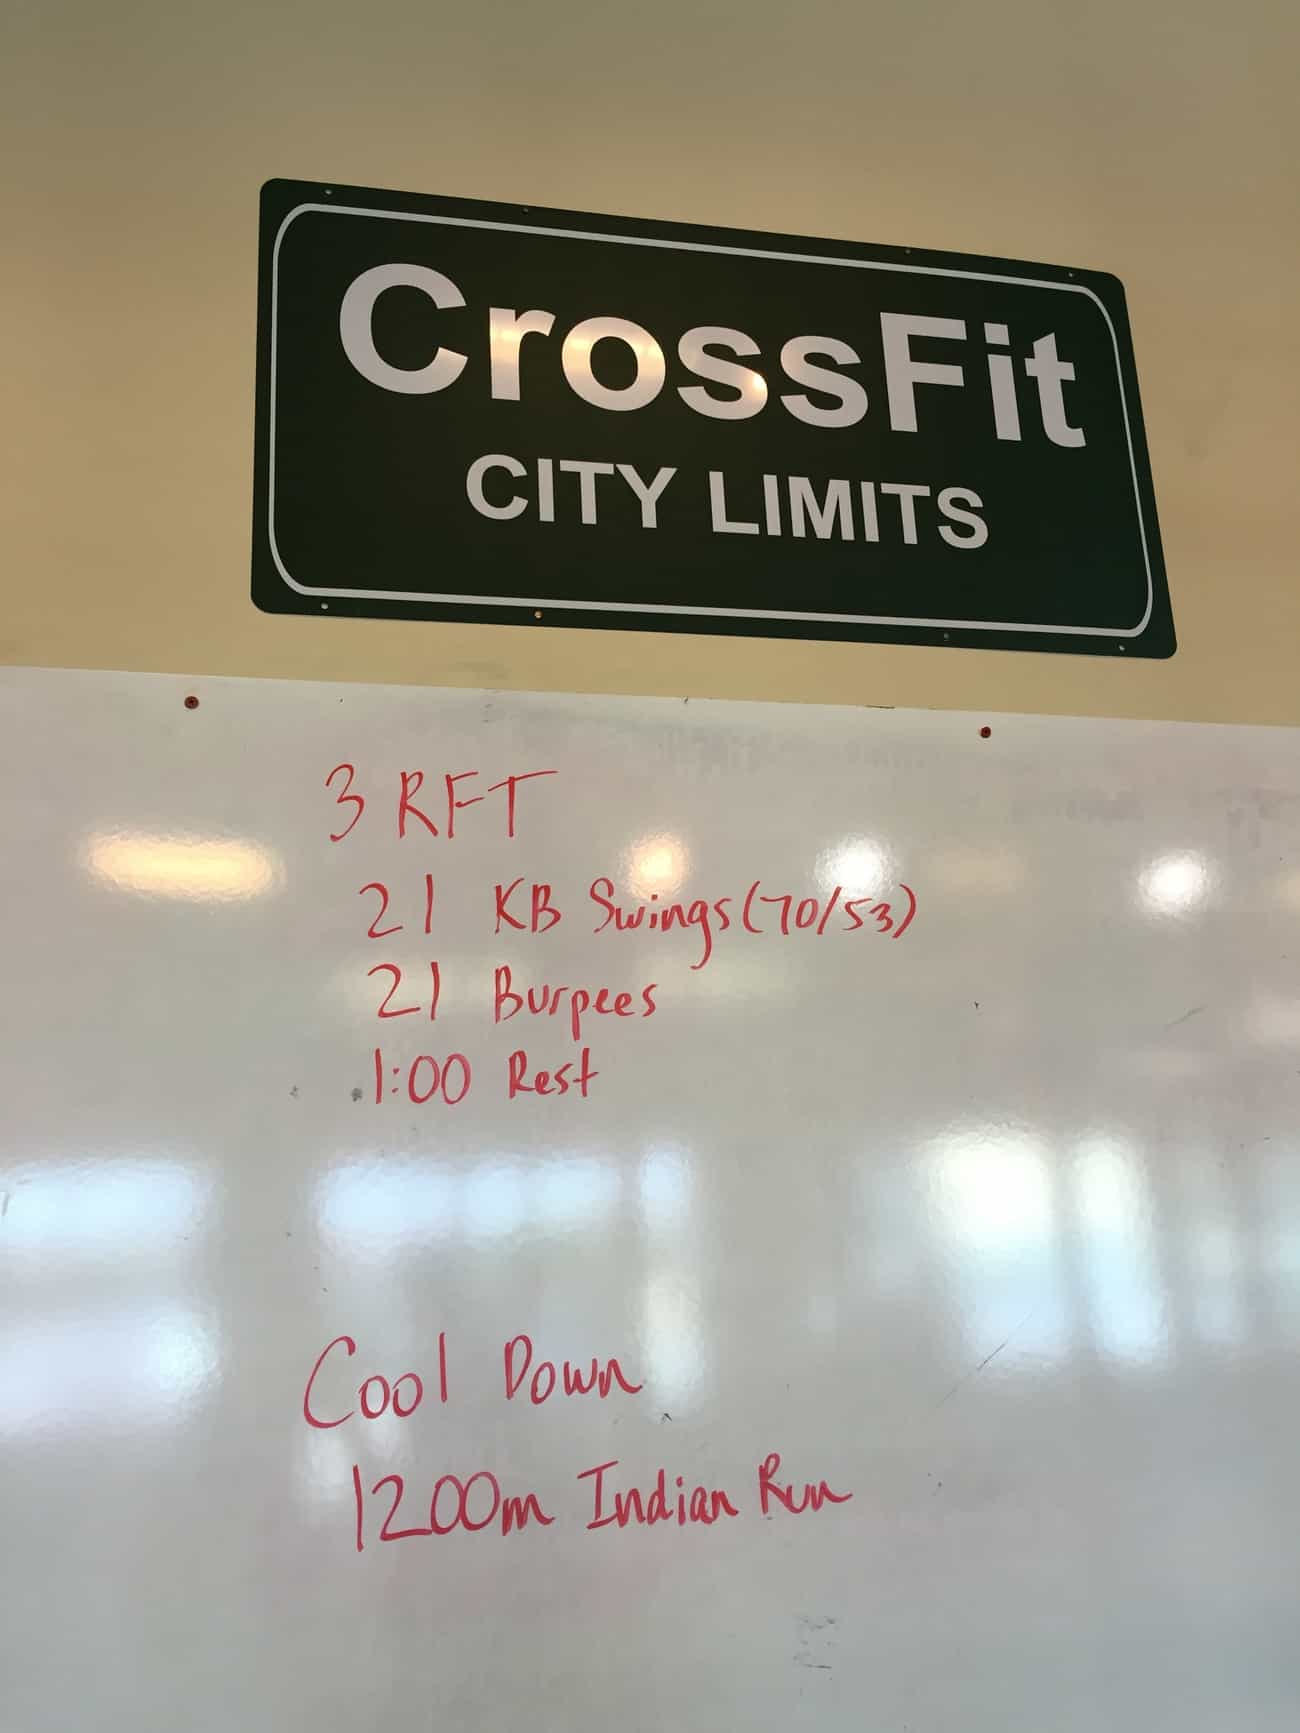 CrossFit
CITY LIMITS
3 RFT
21 KB Swings (70/53)
21 Burpees
1:00 Rest
Cool Down
1200m Indian Run